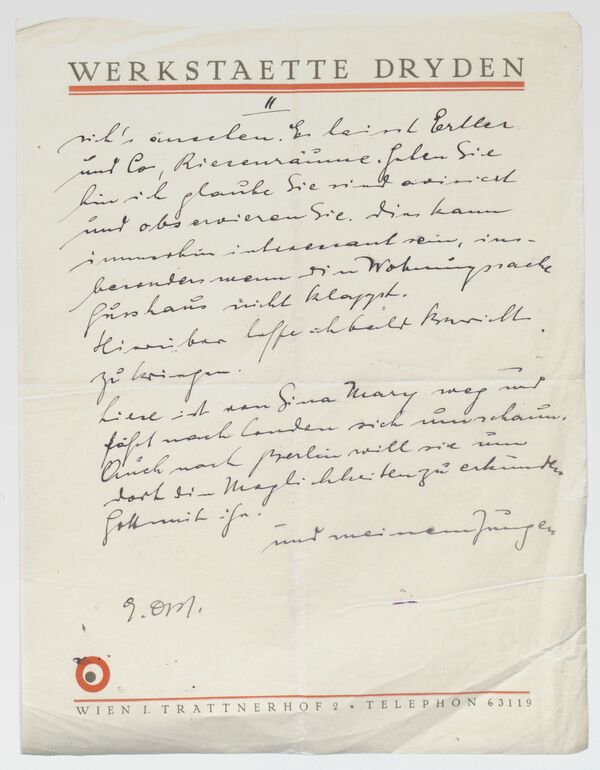 WERKSTAETTE DRYDEN
II
sich's ansehen. Es heisst Ertler
und Co, Riesenräume. Gehen Sie
hin ich glaube Sie sind avisiert
und observieren Sie. Dies kann
immerhin interessant sein, ins-
besonders wenn die Wohnungssache
Gusshaus nicht klappt.
Hierüber hoffe ich bald Bericht
zu kriegen.
Liese ist von Gina Mary weg und
fährt nach London sich umschaun.
Auch nach Berlin will sie um
dort die Möglichkeiten zu erkunden
Gott mit ihr.
und meinem Jungen
WIEN I. TRATTNERHOF 2 • TELEPHON 63119